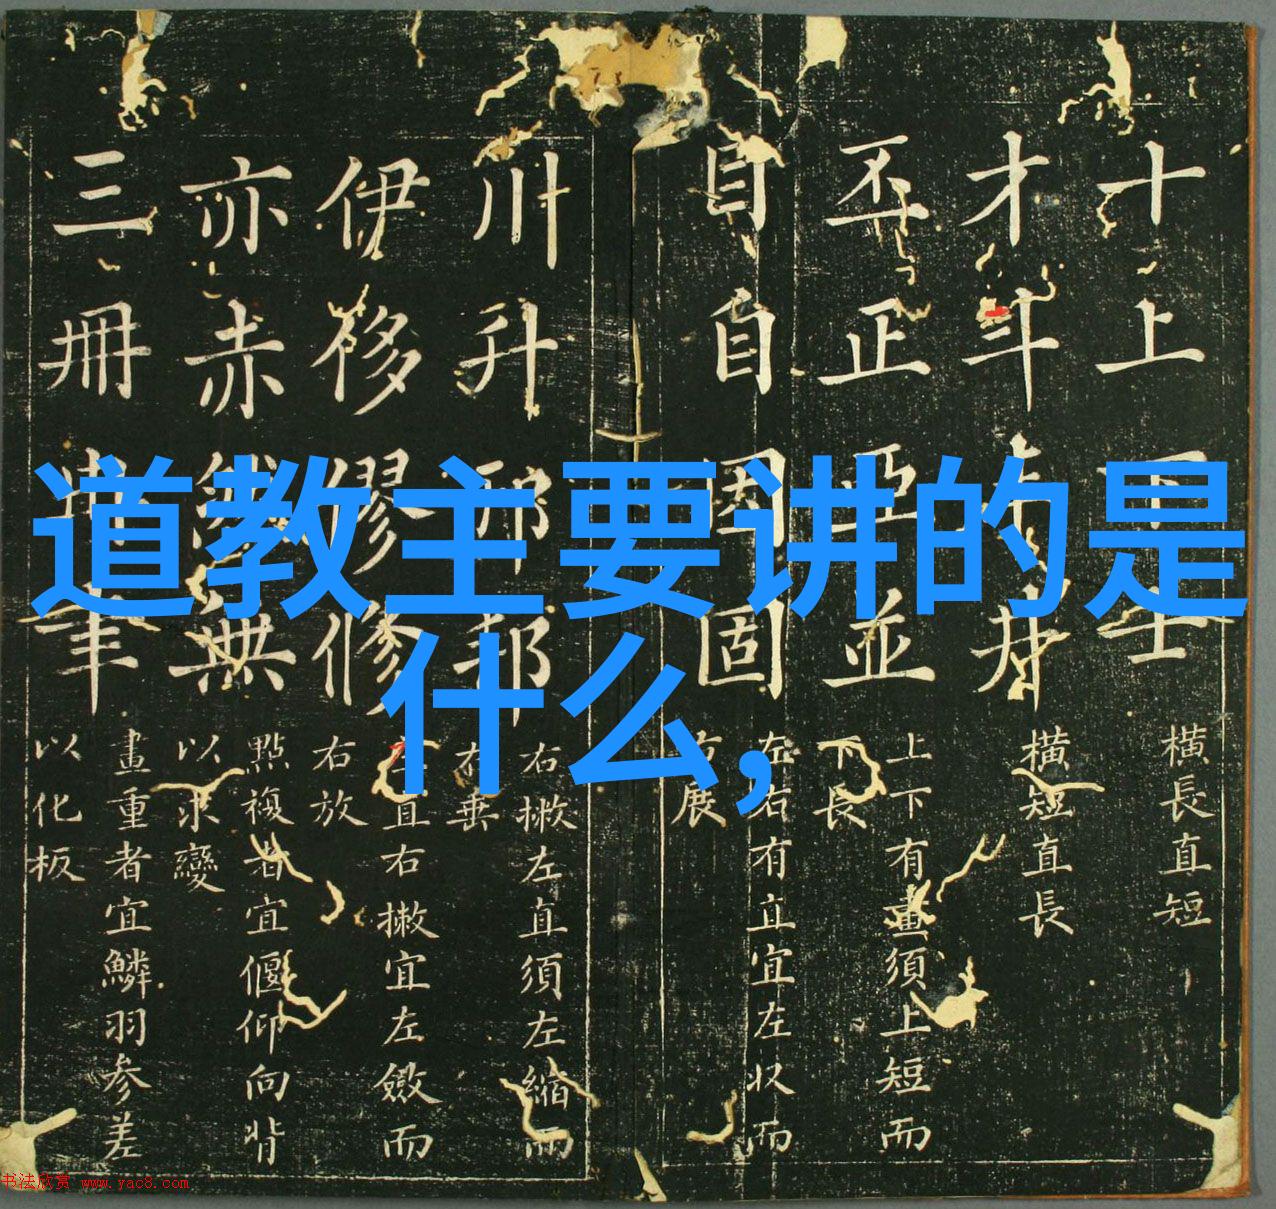 道教主要讲的是
什么,
十上下士
横長直短
才斗
横短直長
丕正亞並
上下有畫須上短而
下長
自自固固
左右有直宜左收而
右展
川升邢邦
右撇左直須左縮而
右垂
伊移修
左直右撇宜左斂而
右放
亦赤無
點複者宜偃仰向背
以求變
三冊
畫重者宜鱗羽参差
以化板
书法欣赏 www.yac8.com